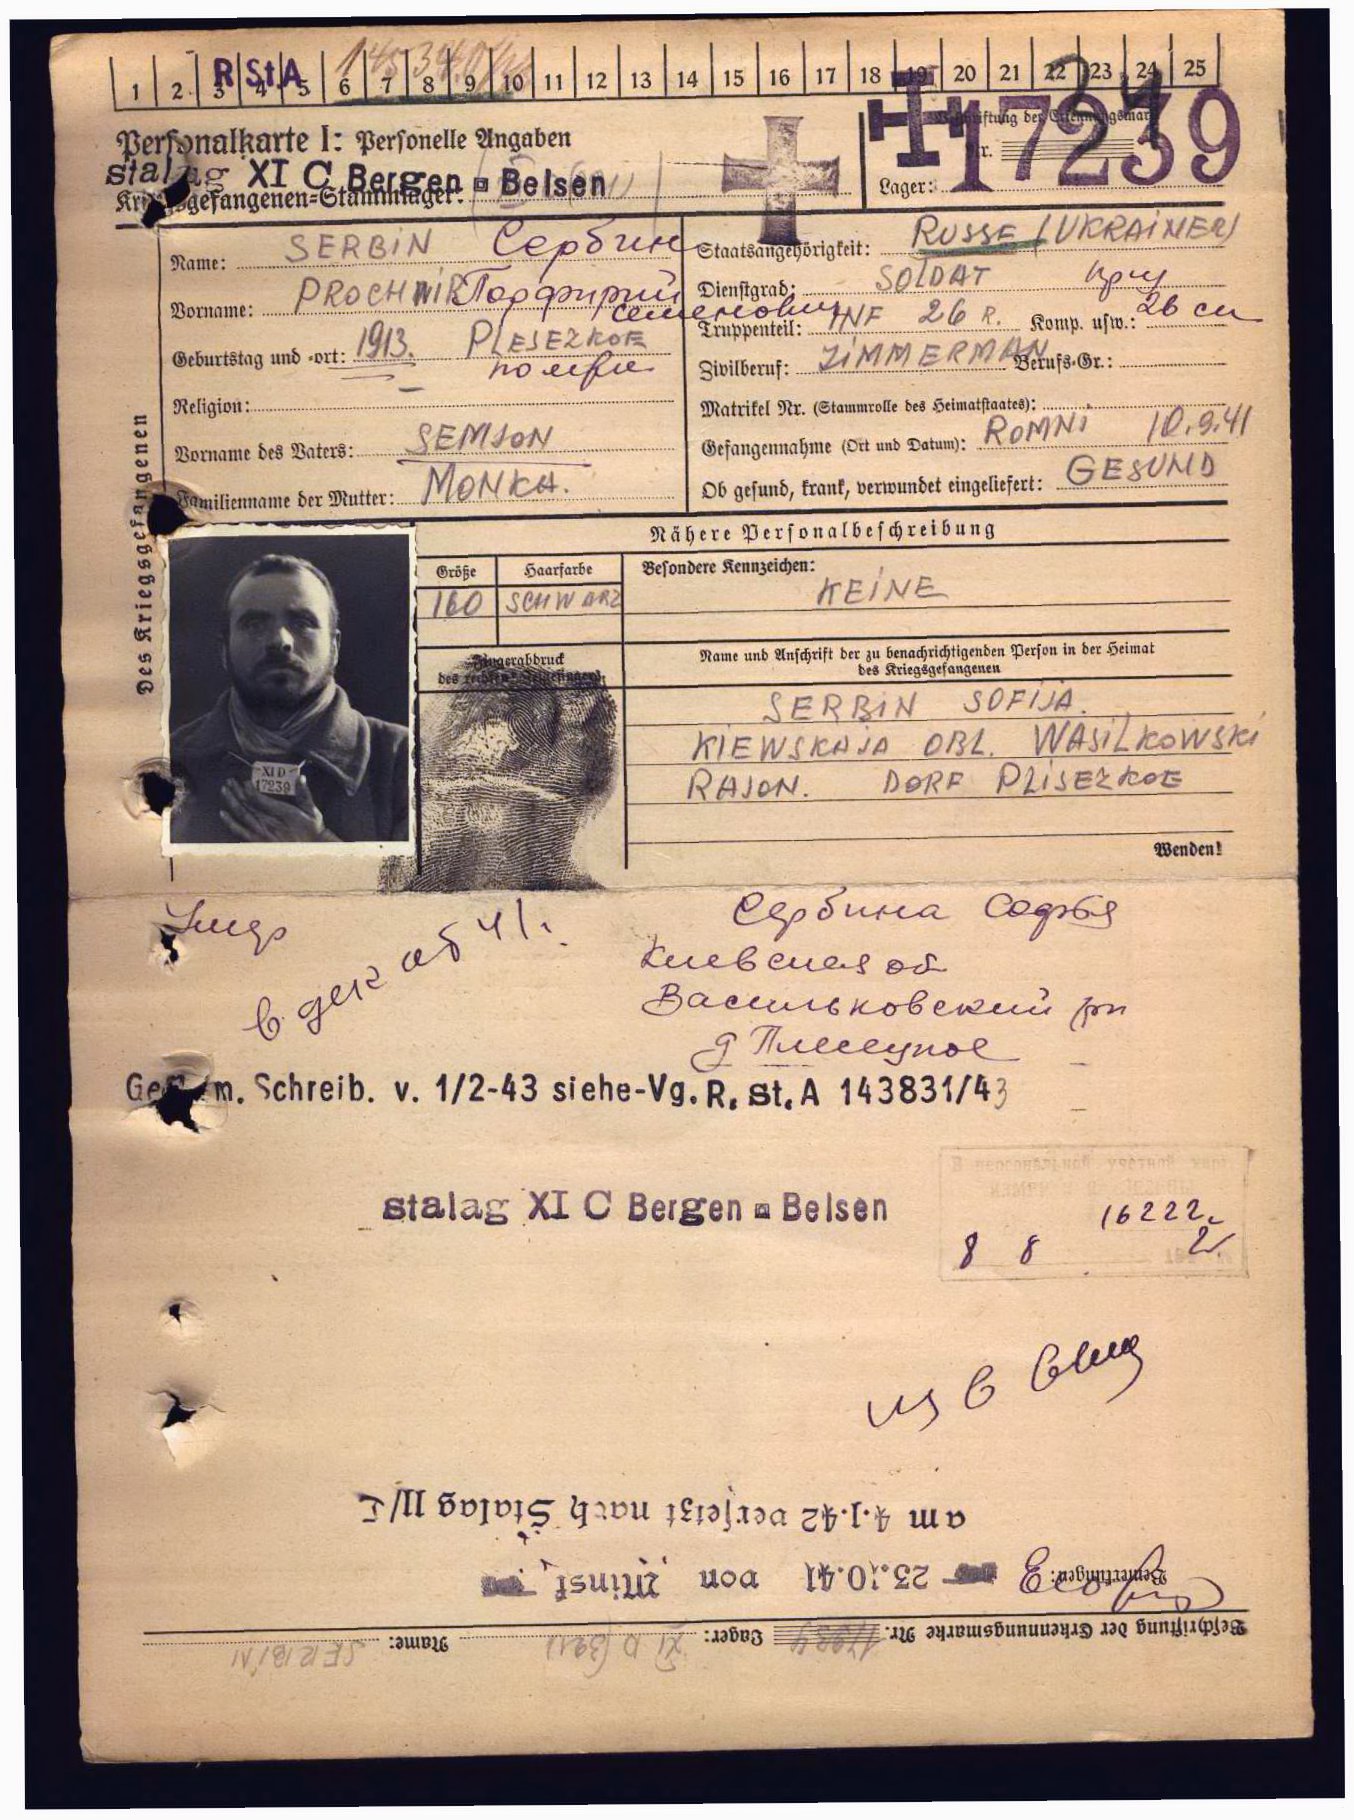 1 2 3 4 5 6 7 8 9 10 11 12 13 14 15 16 17 18 19 20 21 22 23 24 25
R.St.A
Personalkarte I: Personelle Angaben
stalag XI C Bergen Belsen
Kriegsgefangenen-Stammlager:
Beschriftung der Erkennungsmarke
Nr.
17239
Lager:
Des Kriegsgefangenen
Name: SERBIN Сербин
Vorname: PROCHWIR Порфирий
Семенович
Geburtstag und -ort: 1913. PLESEZKOE
Religion:
Vorname des Vaters: SEMJON
Familienname der Mutter: MONKA.
Staatsangehörigkeit: RUSSE (UKRAINER)
Dienstgrad: SOLDAT
Truppenteil: INF 26 R. Komp. usw.: 26 сп
Zivilberuf: ZIMMERMAN Berufs-Gr.:
Matrikel Nr. (Stammrolle des Heimatstaates):
Gefangennahme (Ort und Datum): ROMNI 10.9.41
Ob gesund, krank, verwundet eingeliefert: GESUND
Nähere Personalbeschreibung
Größe Haarfarbe Besondere Kennzeichen:
160 SCHWARZ KEINE
XI D
17239
Fingerabdruck
des rechten Zeigefingers
Name und Anschrift der zu benachrichtigenden Person in der Heimat
des Kriegsgefangenen
SERBIN SOFIJA.
KIEWSKAJA OBL. WASILKOWSKI
RAJON. DORF PLISEZKOE
Wenden!
Умер
в дек 41г.
Сербина Софья
Киевская об
Васильковский рн
д Плесецкое
Gem. Schreib. v. 1/2-43 siehe-Vg. R. St. A 143831/43
stalag XI C Bergen Belsen
16222
8 8
am 4.1.42 versetzt nach Stalag
23.10.41 von Minsk
Bemerkungen:
Beschriftung der Erkennungsmarke Nr. 17239 Lager: XI D (321) Name: SERBIN